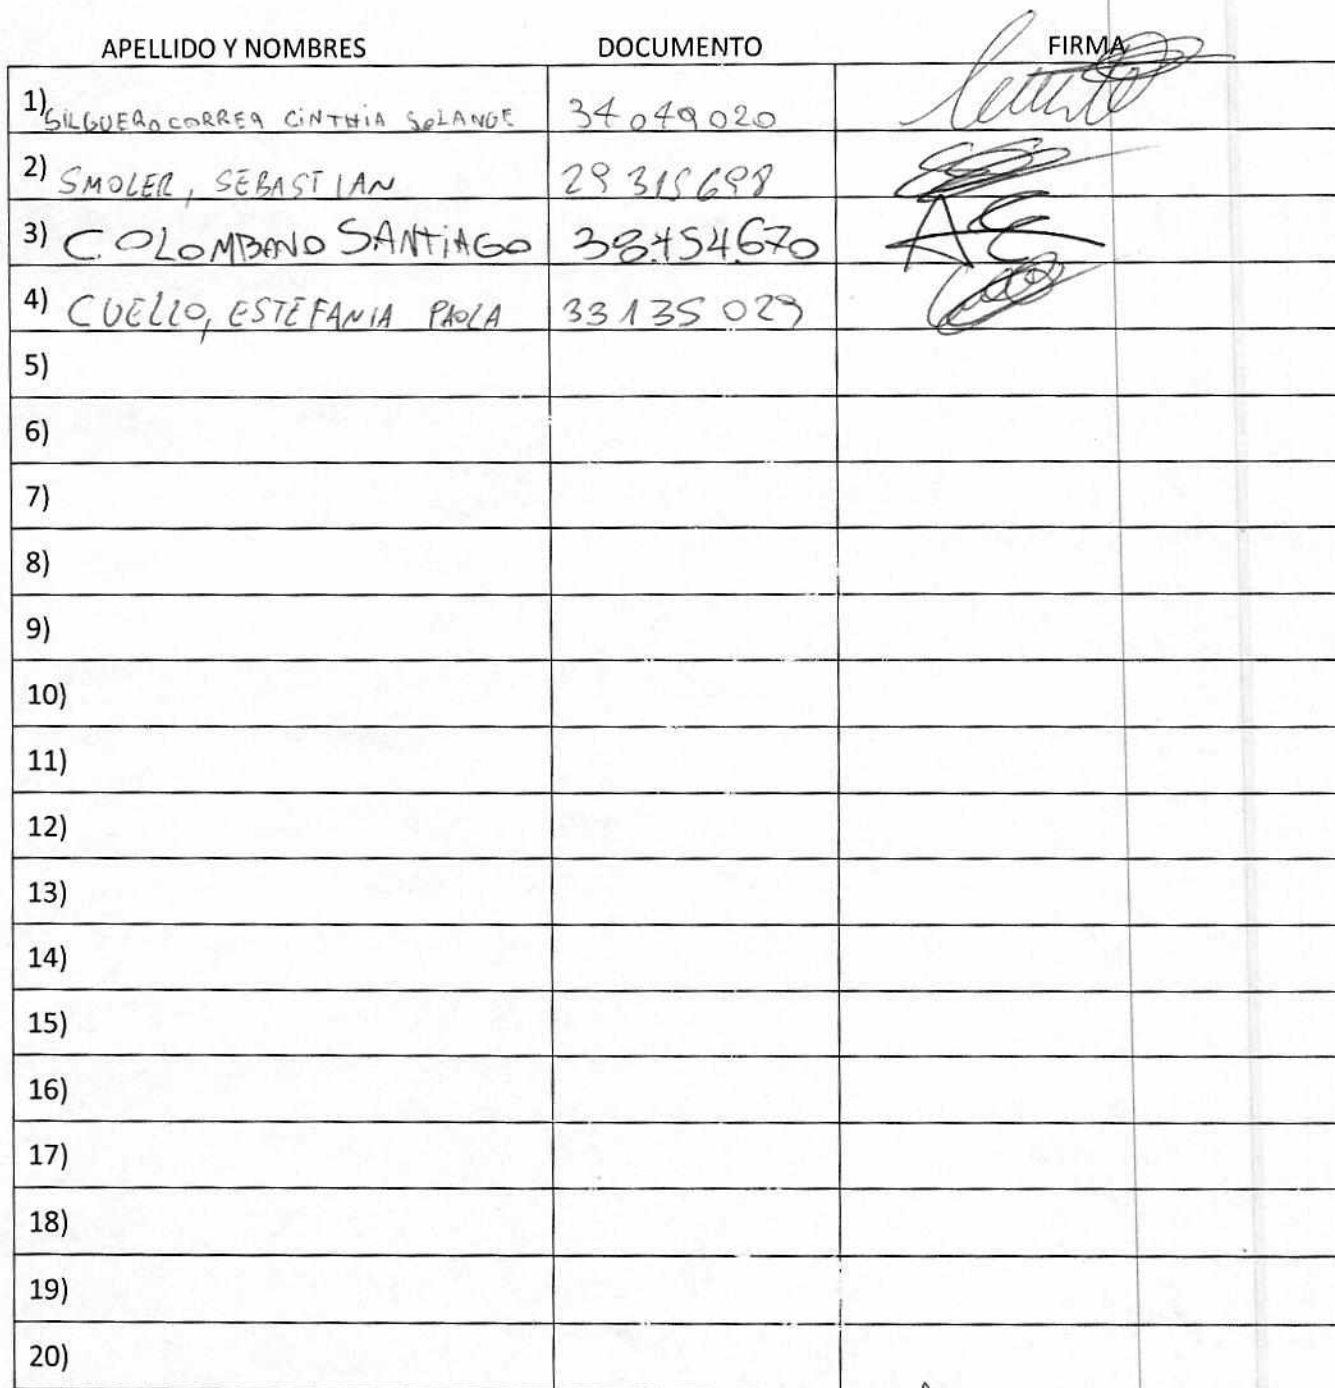 APELLIDO Y NOMBRES DOCUMENTO FIRMA
1) SILGUERO CORREA CINTHIA SOLANGE 34049020
2) SMOLER, SEBASTIAN 29315698
3) COLOMBANO SANTIAGO 38.454.670
4) CUELLO, ESTEFANIA PAOLA 33135029
5)
6)
7)
8)
9)
10)
11)
12)
13)
14)
15)
16)
17)
18)
19)
20)